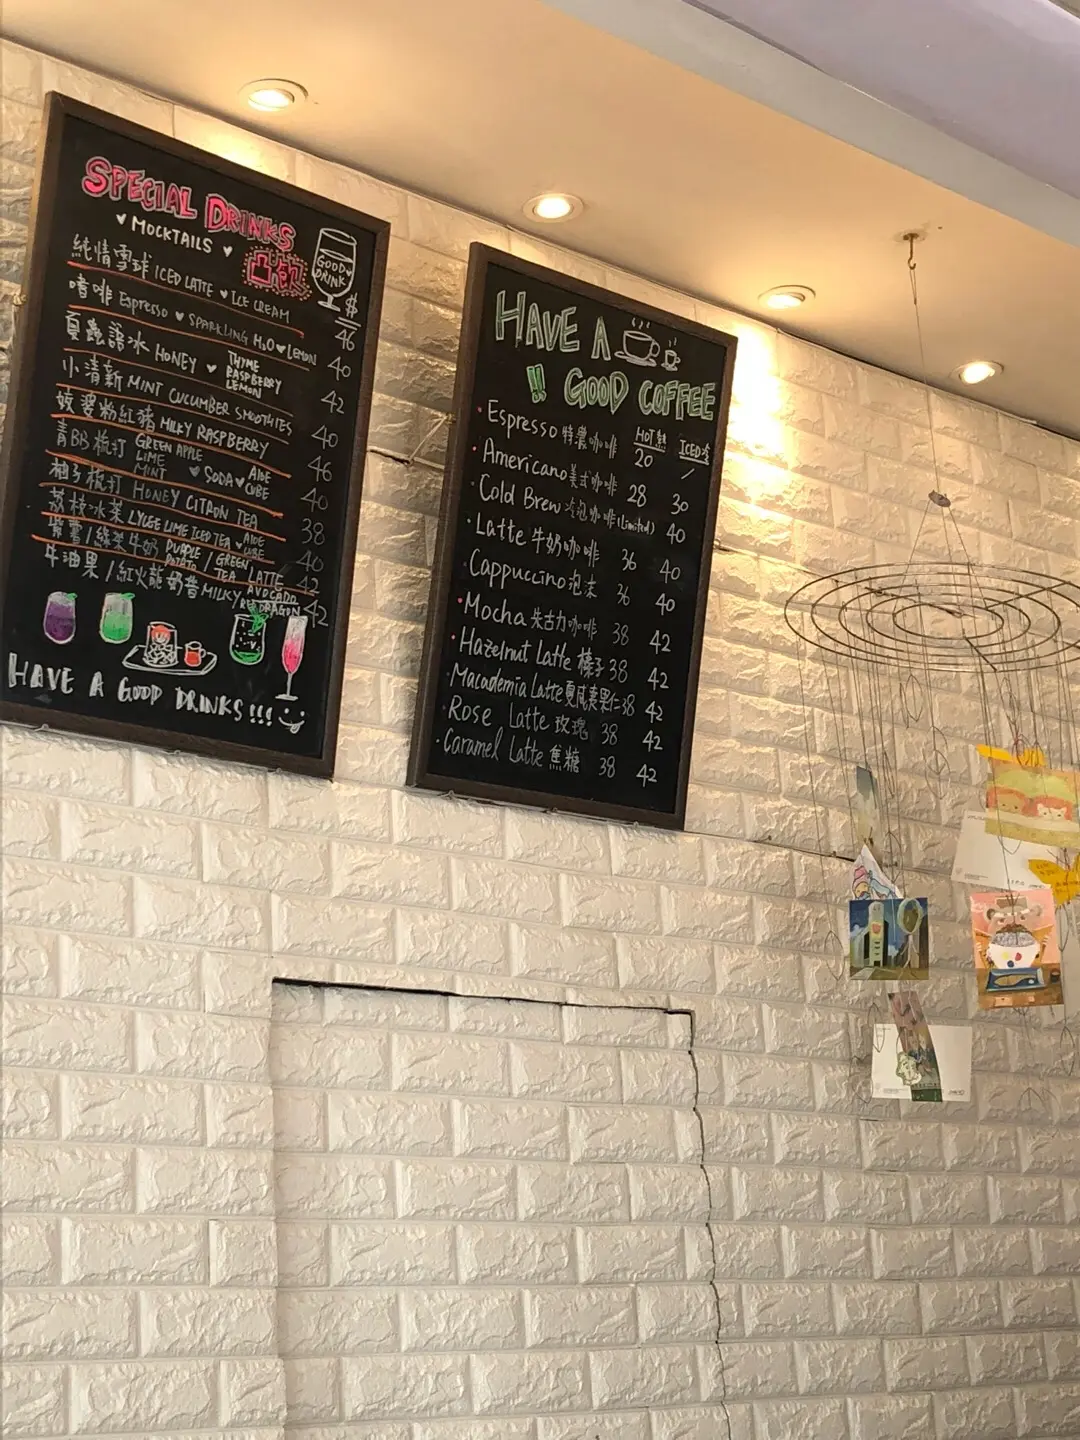 SPECIAL DRINKS
♥ MOCKTAILS ♥
凸飲
GOOD♥
DRINK
$
純情雪球 ICED LATTE ♥ ICE CREAM 46
喳啡 Espresso ♥ SPARKLING H2O ♥ LEMON 40
夏蟲語冰 HONEY ♥ THYME RASPBERRY LEMON 42
小清新 MINT CUCUMBER SMOOTHIES 40
婆粉紅豬 MILKY RASPBERRY 46
青BB梳打 GREEN APPLE LIME MINT ♥ SODA ♥ AIDE CUBE 40
柚子梳打 HONEY CITRON TEA 38
荔枝冰菜 LYCEE LIME ICED TEA ♥ AIDE CUBE 40
紫薯/綠茶牛奶 PURPLE POTATO / GREEN TEA LATTE 42
牛油果/紅火龍奶昔 MILKY AVOCADO RED DRAGON 42
HAVE A GOOD DRINKS!!!
HAVE A
!! GOOD COFFEE
HOT熱 ICED冷
• Espresso 特濃咖啡 20 /
• Americano 美式咖啡 28 30
• Cold Brew 泡咖啡 (Limited) 40
• Latte 牛奶咖啡 36 40
• Cappuccino 泡沫 36 40
• Mocha 朱古力咖啡 38 42
• Hazelnut Latte 榛子 38 42
• Macademia Latte 夏威夷果仁 38 42
• Rose Latte 玫瑰 38 42
• Caramel Latte 焦糖 38 42